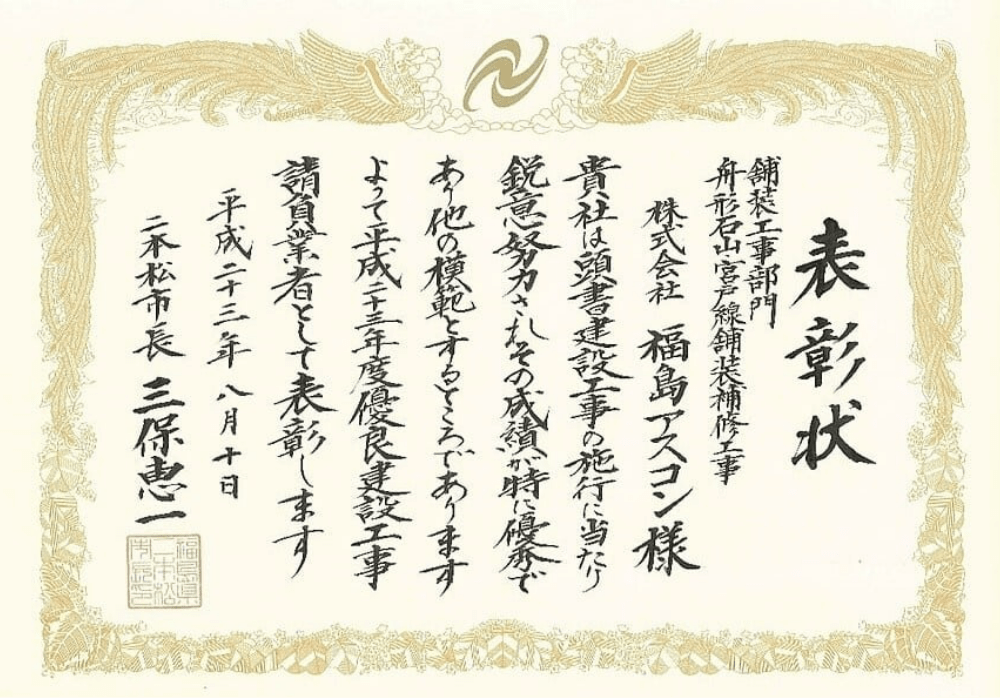 表彰状
舗装工事部門
舟形石山宮戸線舗装補修工事
株式会社 福島アスコン様
貴社は頭書建設工事の施行に当たり
鋭意努力されその成績が特に優秀で
あり他の模範とするところであります
よって平成二十三年度優良建設工事
請負業者として表彰します
平成二十三年八月十日
二本松市長 三保恵一
福島県
二本松
市長印